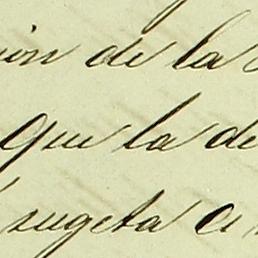 ion de la
que la de
sugeta a